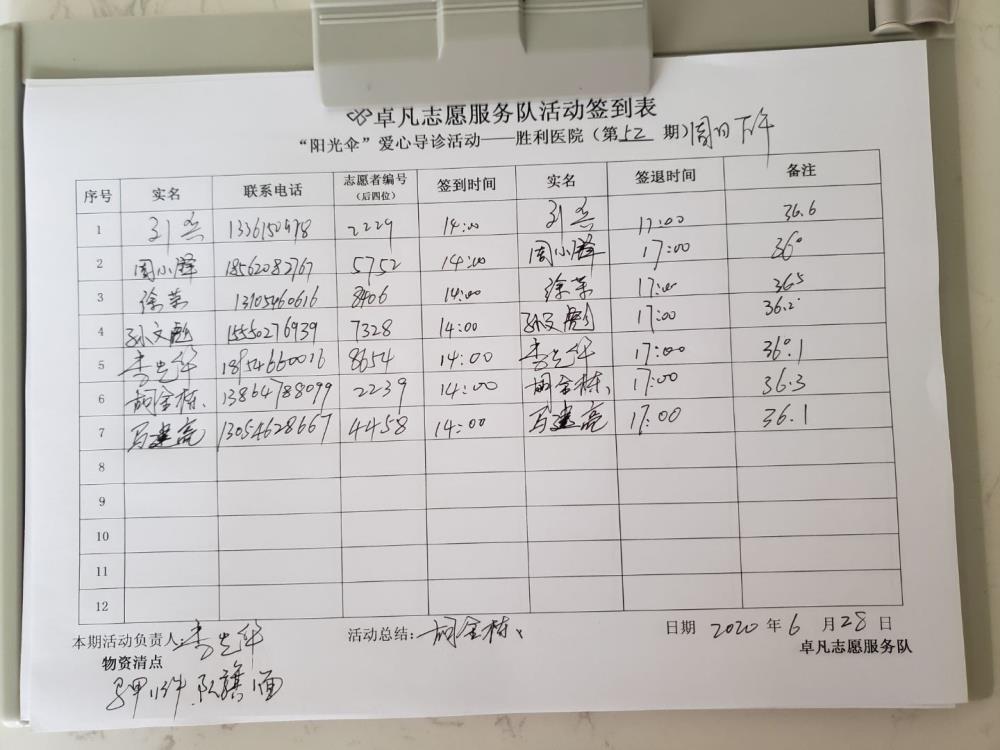 卓凡志愿服务队活动签到表
“阳光伞”爱心导诊活动——胜利医院（第52期）周日下午
序号 实名 联系电话 志愿者编号（后四位） 签到时间 实名 签退时间 备注
1 刘杰 2229 14:00 刘杰 17:00 36.6
2 周小峰 18562082767 5752 14:00 周小峰 17:00 36°
3 徐荣 13105460616 8406 14:00 徐荣 17:00 36.5
4 孙文彪 15550276939 7328 14:00 孙文彪 17:00 36.2°
5 李光华 18954660016 8654 14:00 李光华 17:00 36°.1
6 胡金栋、 13864788099 2239 14:00 胡金栋、 17:00 36.3
7 马建亮 13054628667 4458 14:00 马建亮 17:00 36.1
8
9
10
11
12
本期活动负责人:李光华 活动总结:胡金栋、 日期 2020 年 6 月 28 日
物资清点 卓凡志愿服务队
队旗1面